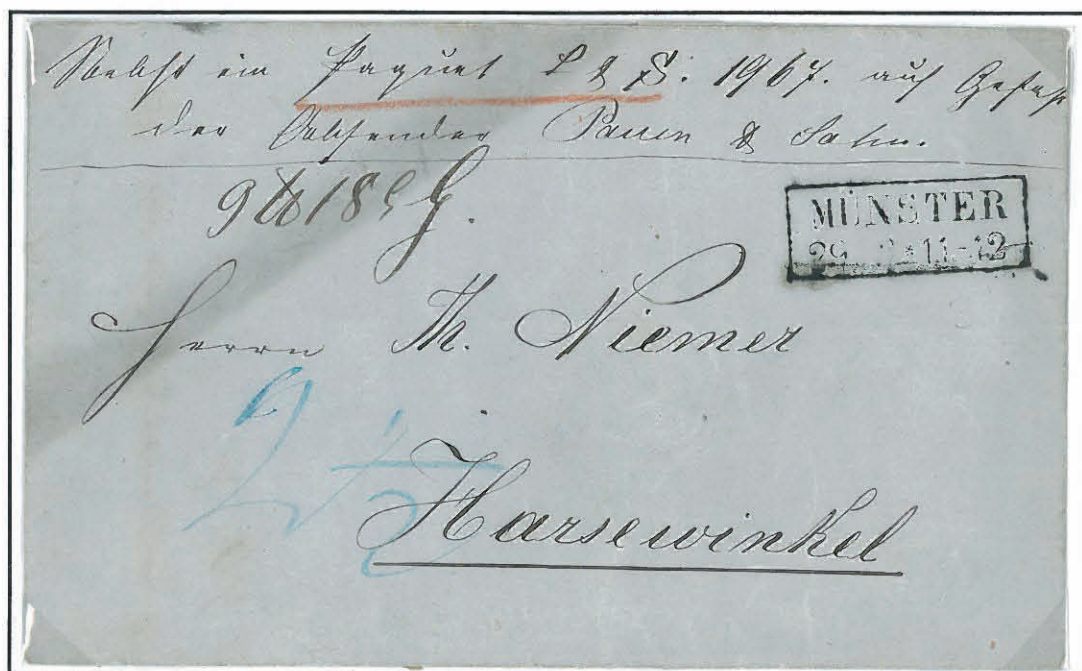 Nebst ein Paquet P & S. 1967. auf Gefahr
der Absender & Sohn.
9 ℔ 18
MÜNSTER
11-12
Herrn Th. Niemer
2 1/2
Harsewinkel